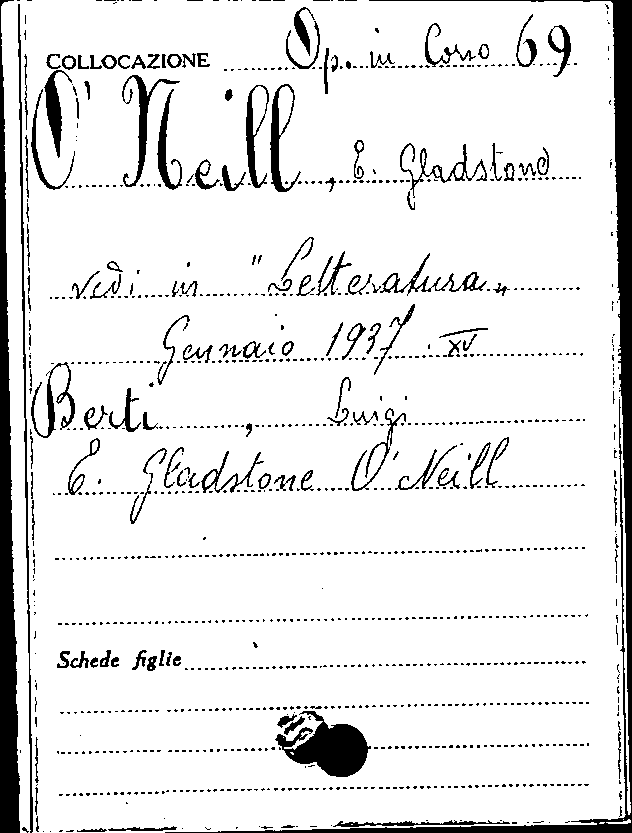 COLLOCAZIONE Op. in Corso 69
O'Neill, E. Gladstone
vedi in "Letteratura"
Gennaio 1937. XV
Berti, Luigi
E. Gladstone O'Neill
Schede figlie